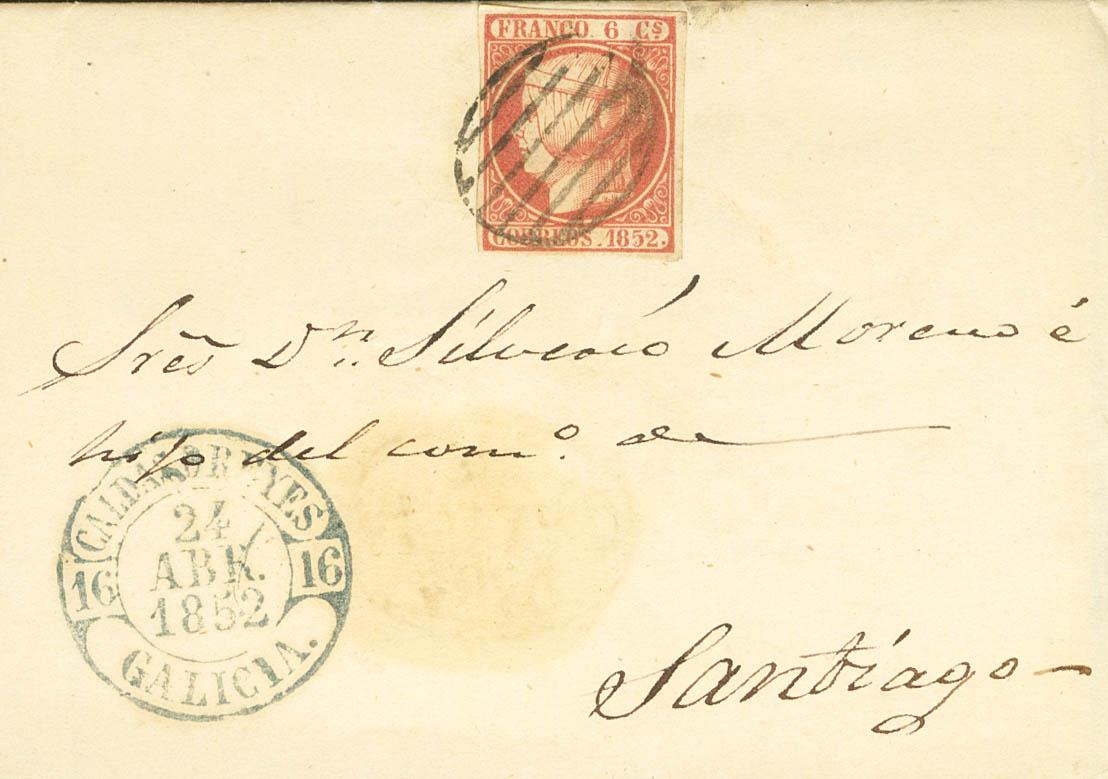 FRANCO. 6 Cs
CORREOS. 1852.
Srēs Dn. Silverio Moreno é
hijo del como. de
CALDAS DE REYES
24
ABR.
1852
16 16
GALICIA.
Santiago